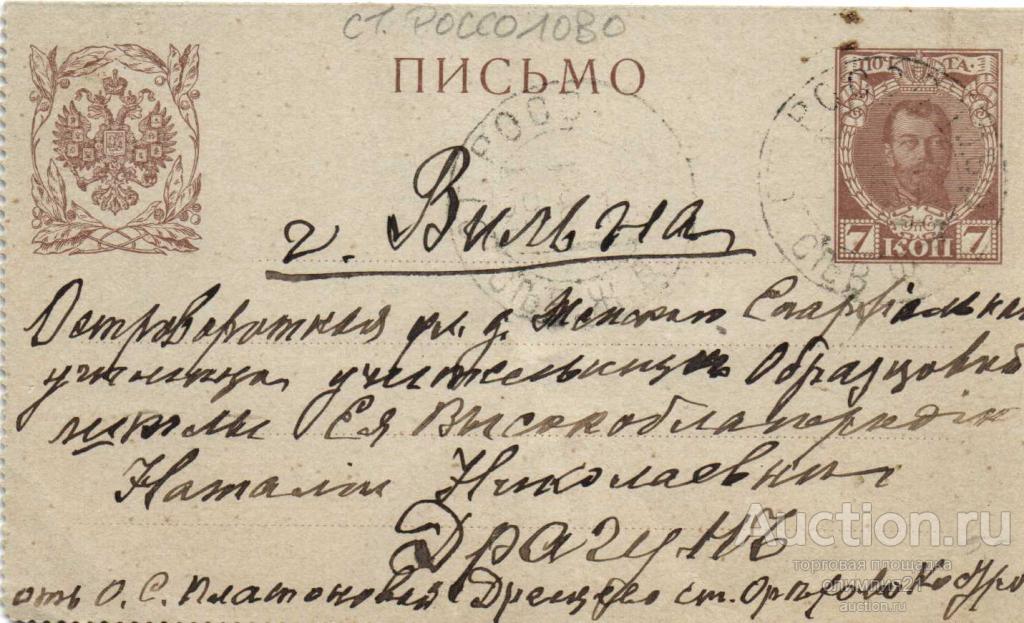 СТ. РОССОЛОВО
ПИСЬМО
ПОЧТА.
7 КОП 7
г. Вильна
Островоротная ул. д. Женскаго Епархіальнаго
училища учительницѣ Образцовой
школы Ея Высокоблагородію
Наталіи Николаевнѣ
Драгунъ
отъ О. С. Платоновой ст.
Auction.ru
торговая площадка
олимпия21
auction.ru